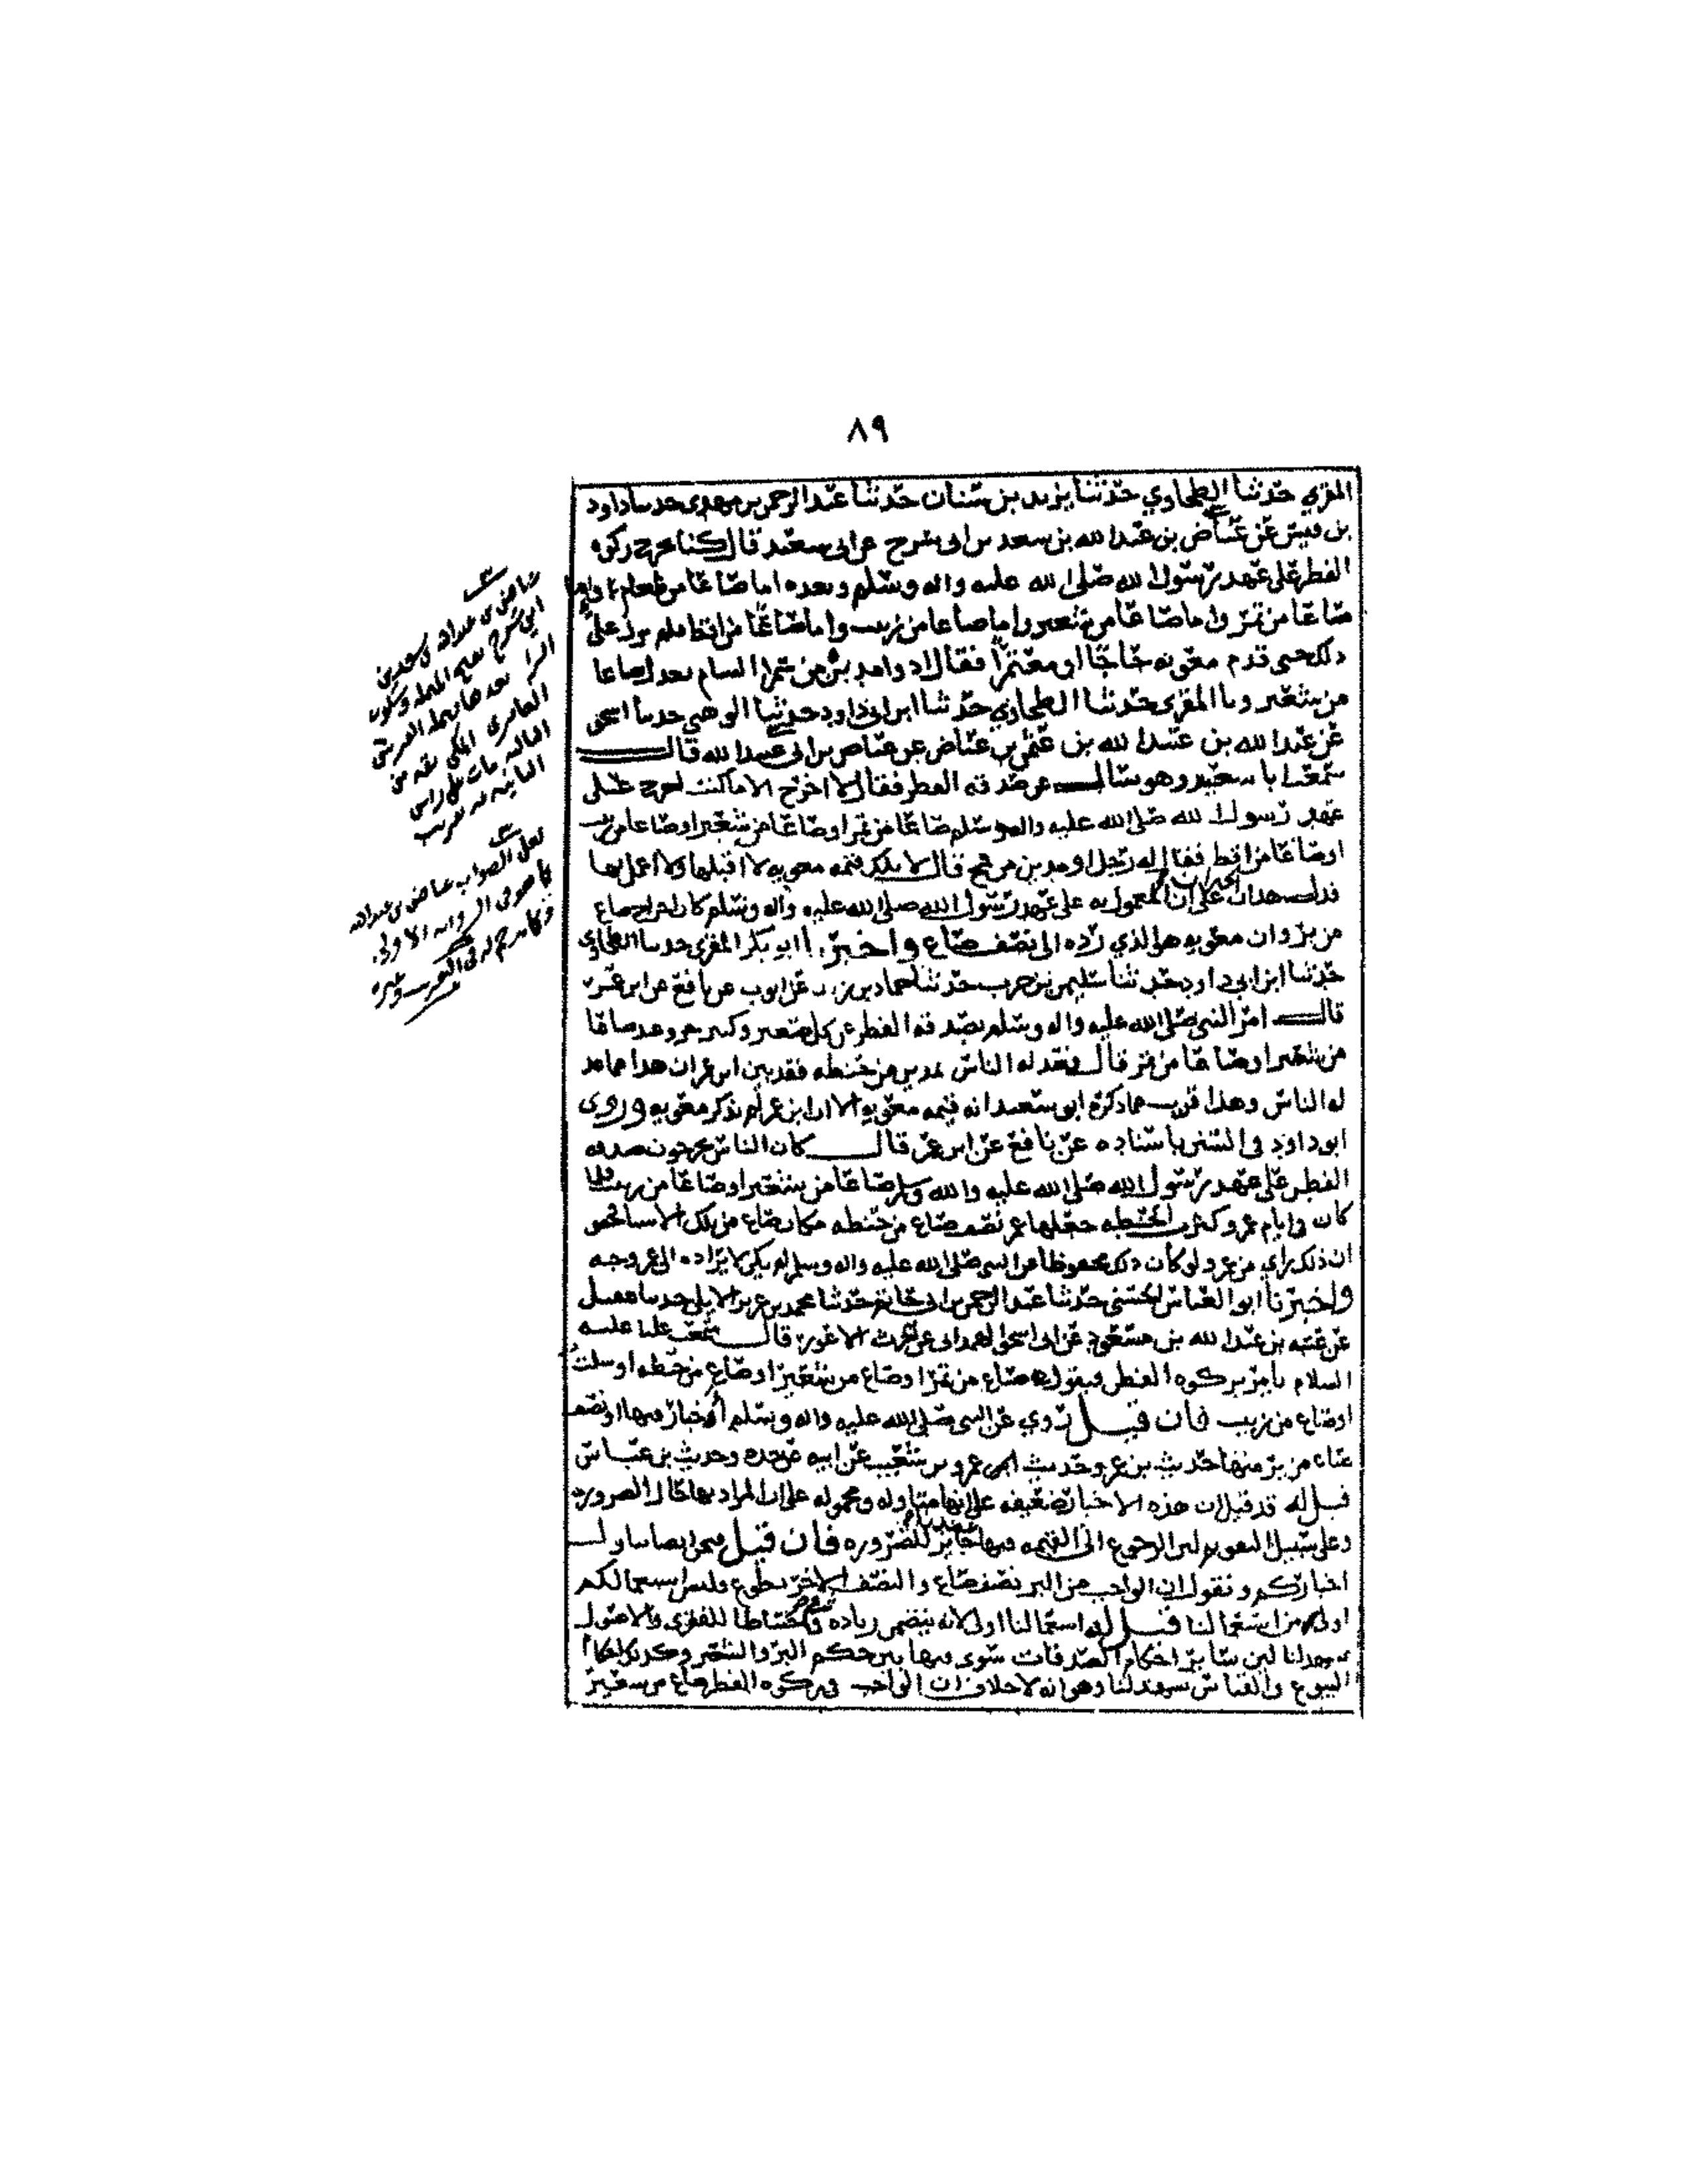 ٨٩
المقري حدثنا الطحاوي حدثنا يزيد بن سنان حدثنا عبد الرحمن بن مهدي حدثنا داود
بن قيس عن عياض بن عبد الله بن سعد بن ابي سرح عن ابي سعيد قال كنا نخرج زكوه
الفطر على عهد رسول الله صلى الله عليه واله وسلم وبعده اما صاعا من طعام واما
صاعا من تمر واما صاعا من شعير واما صاعا من زبيب واما صاعا من اقط فلم نزل على
ذلك حتى قدم معويه حاجا او معتمرا فقال اد وامدين من سمرا الشام يعدل صاعا
من شعير ونا المقري حدثنا الطحاوي حدثنا ابن ابي داود حدثنا الوهبي حدثنا اسحق
عن عبد الله بن عبد الله بن عثمن عن عياض بن ابي عبد الله قال
سمعت ابا سعيد وهو يسال عن صدقه الفطر فقال لا اخرج الا ما كنت اخرج على
عهد رسول الله صلى الله عليه واله وسلم صاعا من تمر او صاعا من شعير او صاعا من زبيب
او صاعا من اقط فقال له رجل او مدين من قمح قال لا تلك قيمه معويه لا اقبلها ولا اعمل بها
فدل هذان الخبران على ان المعمول به على عهد رسول الله صلى الله عليه واله وسلم كان اخراج صاع
من بر وان معويه هو الذي رده الى نصف صاع واخبرنا ابو بكر المقري حدثنا الطحاوي
حدثنا ابن ابي داود حدثنا سليمن بن حرب حدثنا حماد بن زيد عن ايوب عن نافع عن ابن عمر
قال امر النبي صلى الله عليه واله وسلم بصدقه الفطر عن كل صغير وكبير حر وعبد صاعا
من شعير او صاعا من تمر قال فعدله الناس بمدين من حنطه فقد بين ابن عمر ان هذا مما عدله
له الناس وهذا قريب مما ذكره ابو سعيد انه قيمه معويه الا ان ابن عمر لم يذكر معويه وروى
ابو داود في السنن باسناده عن نافع عن ابن عمر قال كان الناس يخرجون صدقه
الفطر على عهد رسول الله صلى الله عليه واله وسلم صاعا من شعير او صاعا من زبيب فلما
كان في ايام عمر وكثرت الحنطه جعلها عمر نصف صاع من حنطه مكان صاع من تلك الاشيا فحصل
ان ذلك راي من عمر ولو كان ذلك محفوظا عن النبي صلى الله عليه واله وسلم لم يكن لايراده الى عمر وجه
واخبرنا ابو العباس الحسني حدثنا عبد الرحمن بن ابي حاتم حدثنا محمد بن عزيز الايلي حدثنا
عن عتبه بن عبد الله بن مسعود عن ابي اسحق الهمداني عن الحرث الاعور قال سمعت عليا عليه
السلام يامر بزكوه الفطر فيقول صاع من تمر او صاع من شعير او صاع من حنطه او سلت
او صاع من زبيب فان قيل روي عن النبي صلى الله عليه واله وسلم اخبار فيها او نصف
صاع من بر منها حديث بن عمر وحديث عمرو بن شعيب عن ابيه عن جده وحديث بن عباس
قيل له قد قيل ان هذه الاخبار ضعيفه على انها متاوله ومحموله على ان المراد بها حال الضروره
وعلى سبيل التقويم لان الرجوع الى القيمه فيها جايز للضروره فان قيل فنحن ايضا نتاول
اخباركم ونقول ان الواجب من البر نصف صاع والنصف الاخر تطوع وليس استعمالكم
اولى من استعمالنا قيل له استعمالنا اولى لانه يتضمن زياده واحتياطا للفقرى والاصول
تشهد لنا لان ساير احكام الصدقات سوى فيها بين حكم البر والشعير وكذلك احكام
البيوع والقياس يشهد لنا وهو انه لا خلاف ان الواجب في زكوه الفطر صاع من شعير
عياض بن عبد الله بن سعد بن
ابي سرح بفتح المهمله وسكون
الرا بعدها مهمله القرشي
العامري المكي ثقه من
الثالثه مات على راس
المايه تقريب
لعل الصواب عياض بن عبد الله
كما هو في الروايه الاولى
وكما ترجم له في التقريب وغيره